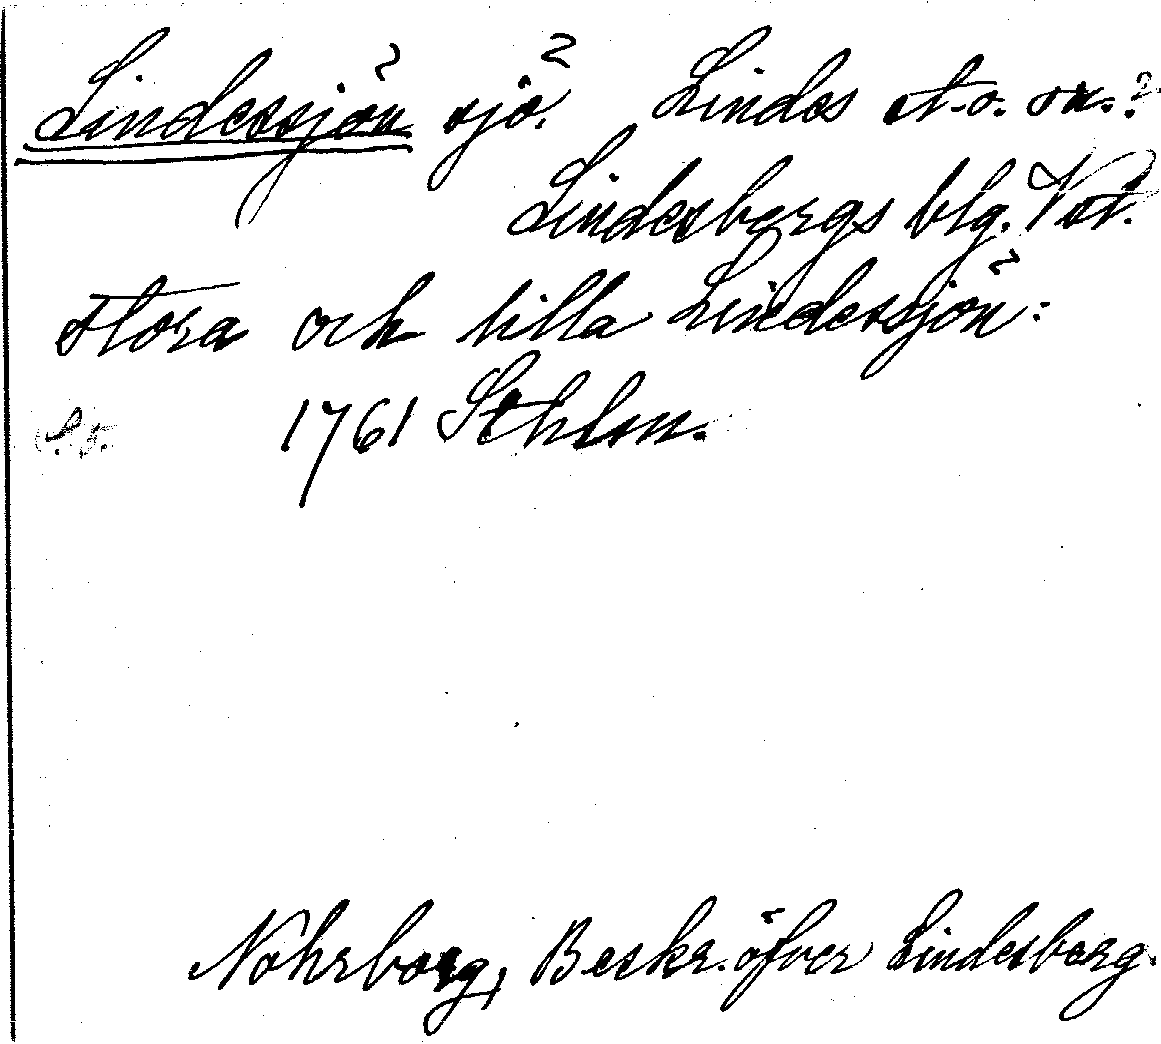 Lindessjön sjö. Lindes st. o. sn.?
Lindesbergs blg. Vstl.
Stora och lilla Lindessjön:
1761 Sthlm.
Nohrborg, Beskr. öfver Lindesberg.